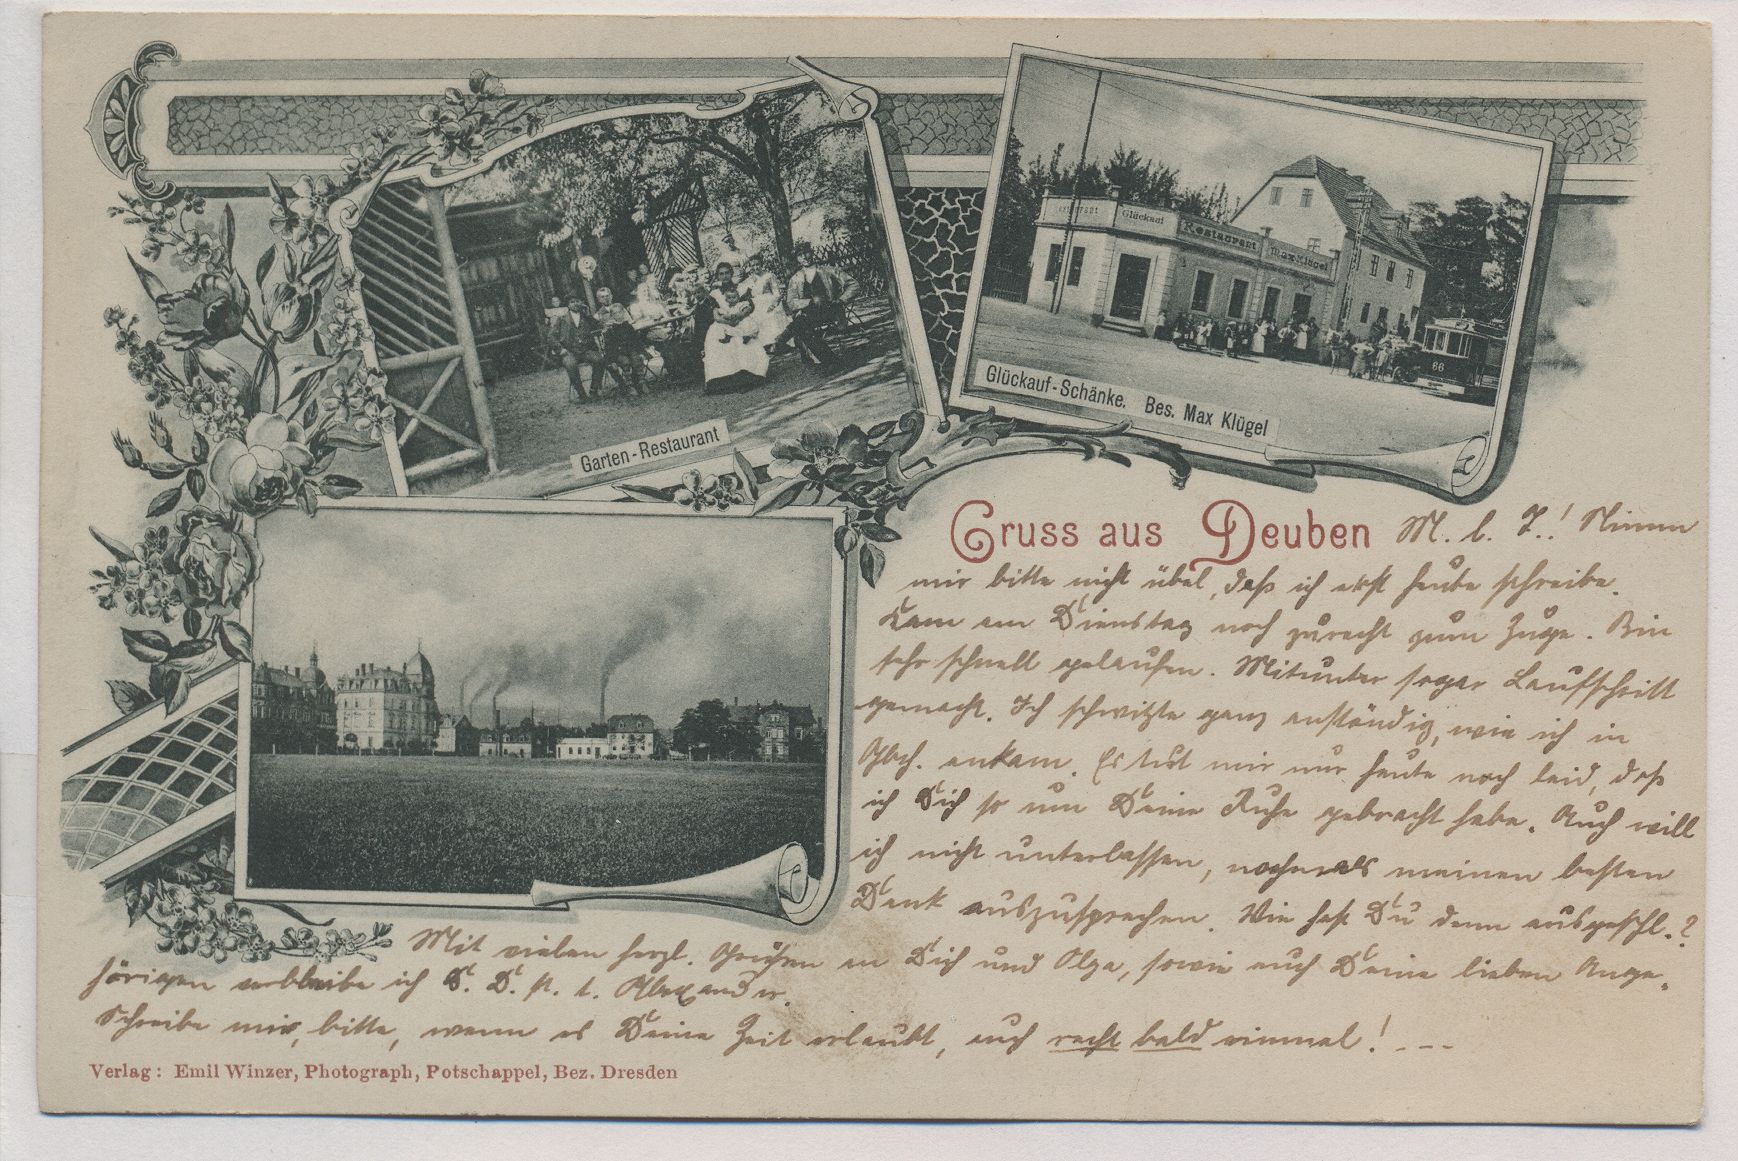 Glückauf
Restaurant
Max Klügel
66
Garten-Restaurant
Glückauf-Schänke. Bes. Max Klügel
Gruss aus Deuben
M. l. J.! Nimm
mir bitte nicht übel, daß ich erst heute schreibe.
Kam am Dienstag noch zurecht zum Zuge. Bin
sehr schnell gelaufen. Mitunter sogar Laufschritt
gemacht. Ich schwitzte ganz anständig, wie ich in
ankam. Es tut mir nur heute noch leid, daß
ich Dich so um Deine Ruhe gebracht habe. Auch will
ich nicht unterlassen, nochmals meinen besten
Dank auszusprechen. Wie hast Du denn ausgeschl.?
Mit vielen herzl. Grüßen an Dich und Olga, sowie auch Deine lieben Ange-
hörigen verbleibe ich D. D. Alexander.
Schreibe mir, bitte, wenn es Deine Zeit erlaubt, auch recht bald einmal! ---
Verlag: Emil Winzer, Photograph, Potschappel, Bez. Dresden